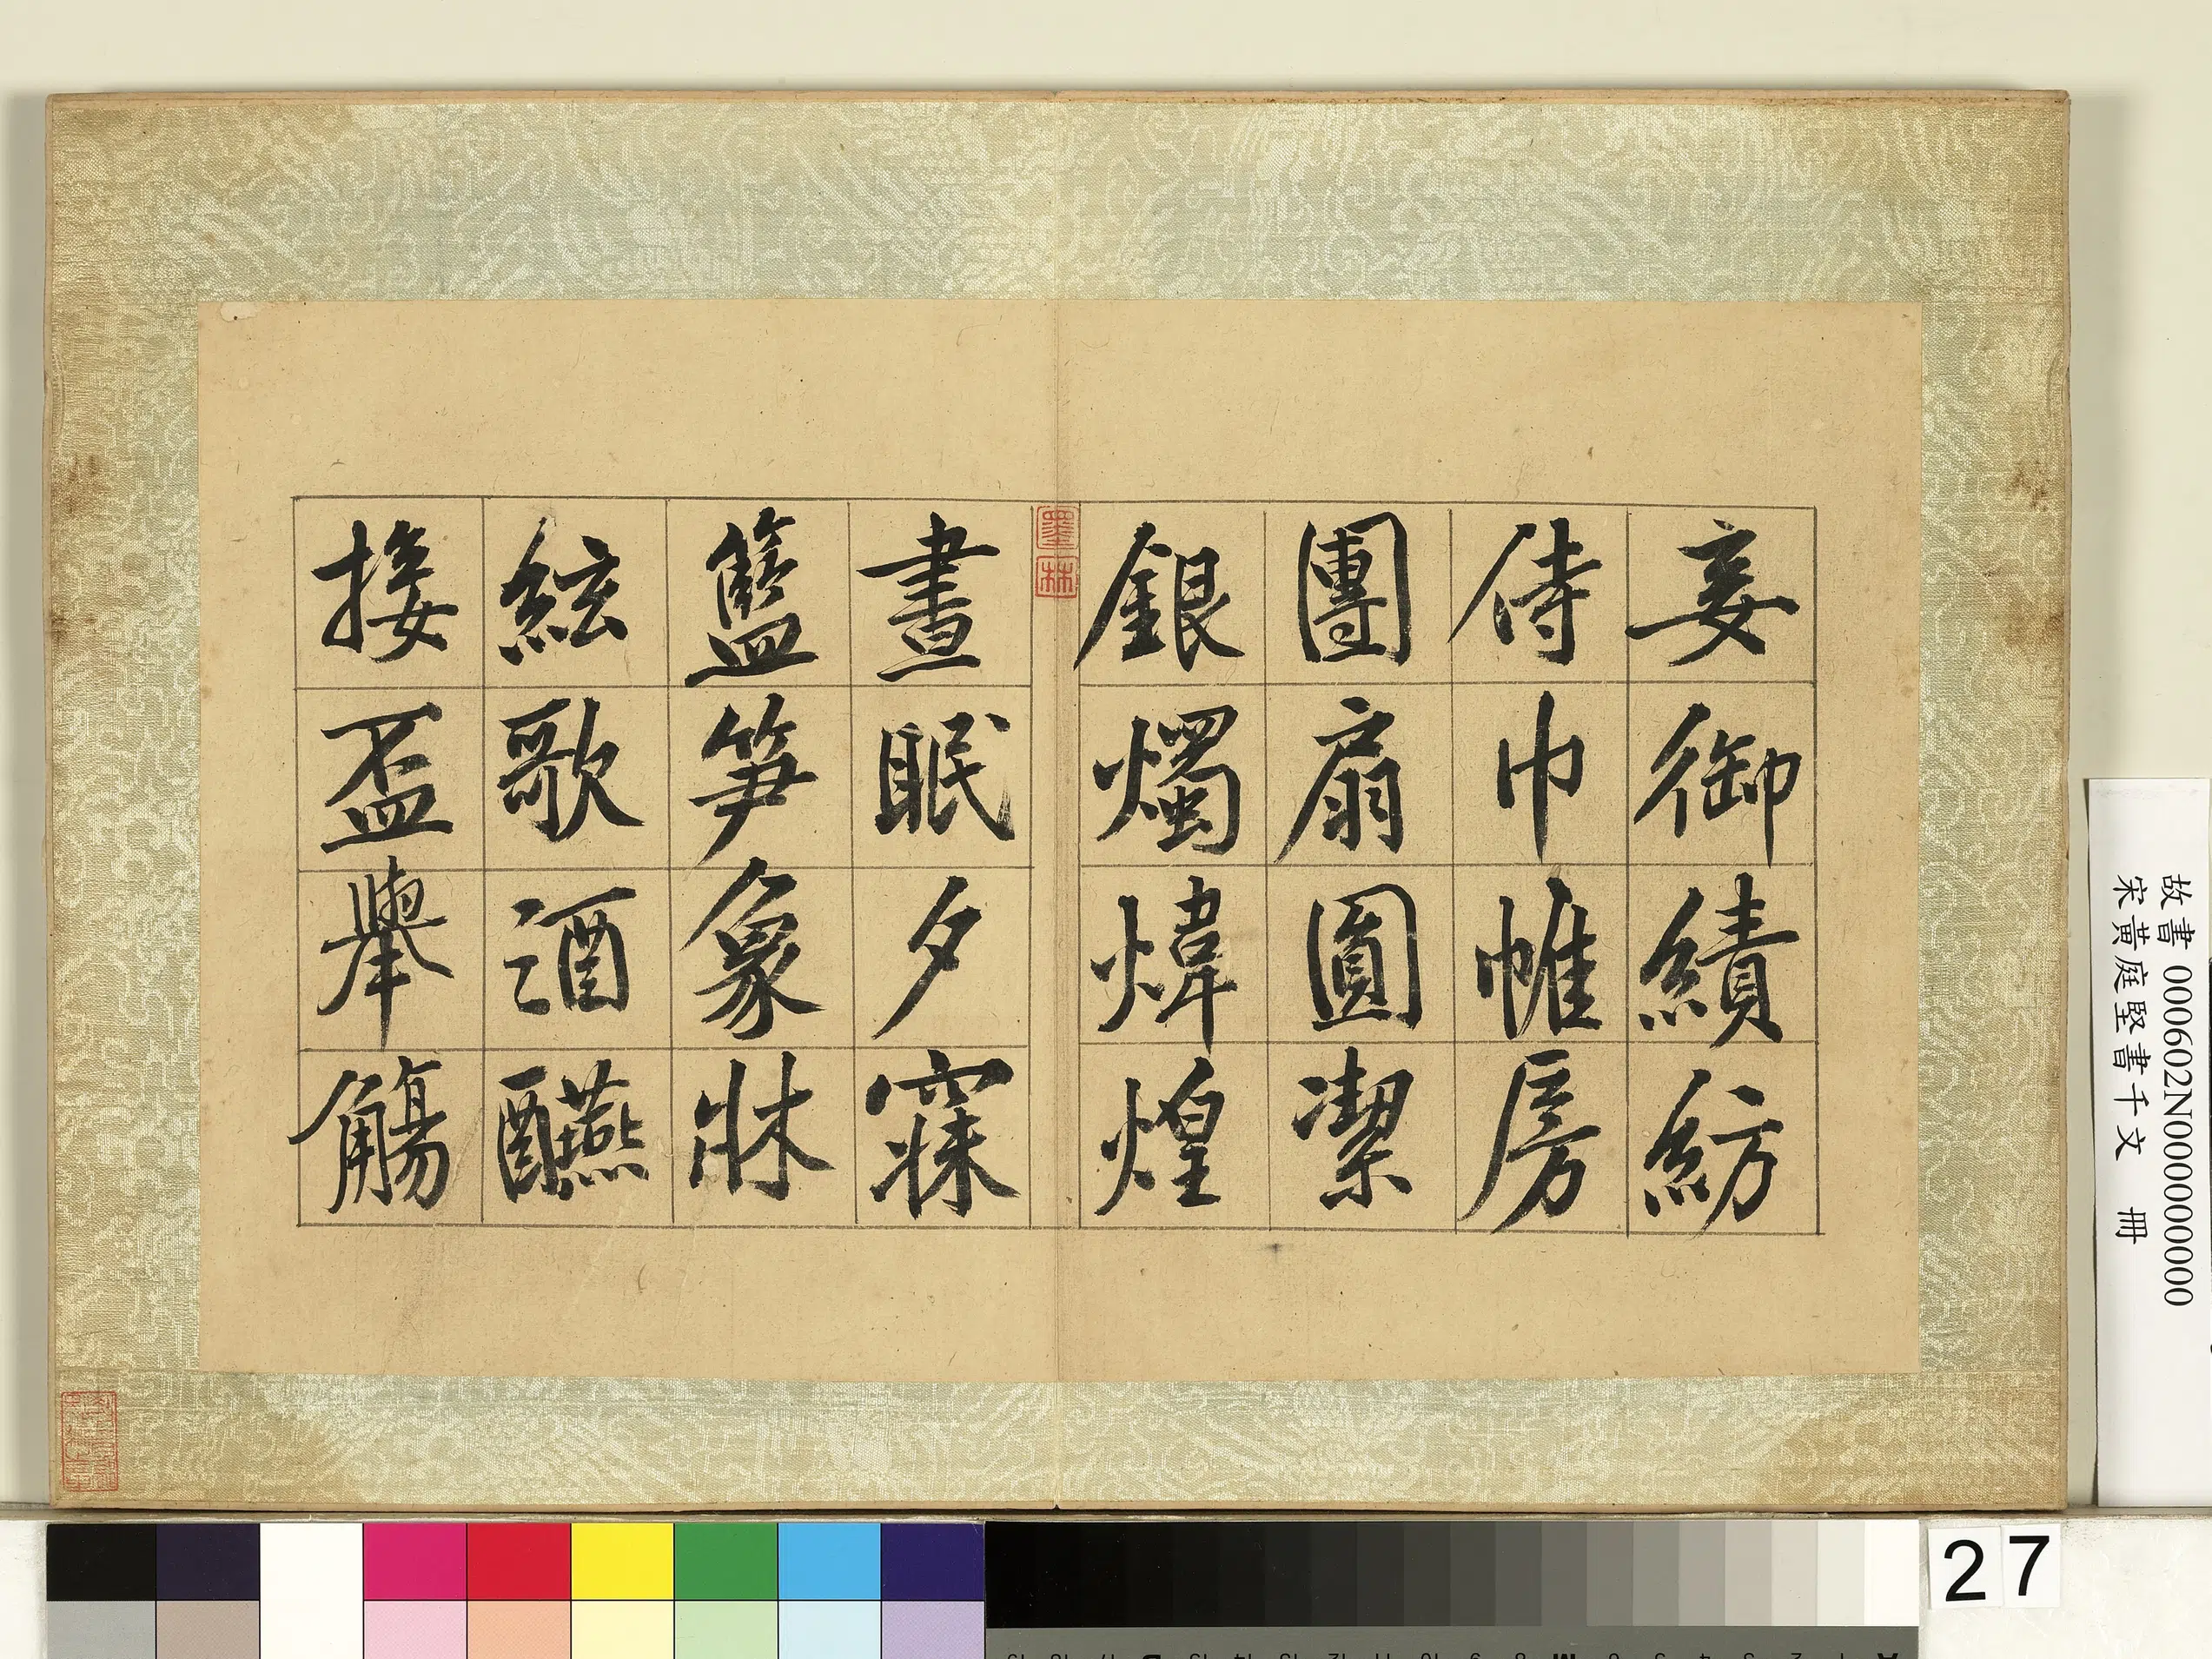 妾御績紡
侍巾帷房
團扇圓㓗
銀燭煒煌
墨林
晝眠夕寐
籃笋象牀
絃歌酒醼
接盃舉觴
故書 000602N000000000
宋黃庭堅書千文 冊
27